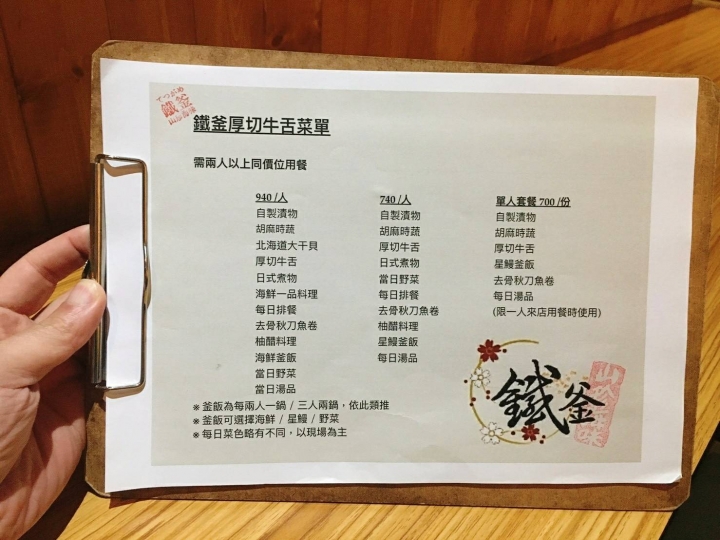 てつがめ
鐵釜
鐵釜厚切牛舌菜單
需兩人以上同價位用餐
940 /人
自製漬物
胡麻時蔬
北海道大干貝
厚切牛舌
日式煮物
海鮮一品料理
每日排餐
去骨秋刀魚卷
柚醋料理
海鮮釜飯
當日野菜
當日湯品
740 /人
自製漬物
胡麻時蔬
厚切牛舌
日式煮物
當日野菜
每日排餐
去骨秋刀魚卷
柚醋料理
星鰻釜飯
每日湯品
單人套餐 700 /份
自製漬物
胡麻時蔬
厚切牛舌
星鰻釜飯
去骨秋刀魚卷
每日湯品
(限一人來店用餐時使用)
※ 釜飯為每兩人一鍋 / 三人兩鍋，依此類推
※ 釜飯可選擇海鮮 / 星鰻 / 野菜
※ 每日菜色略有不同，以現場為主
鐵釜